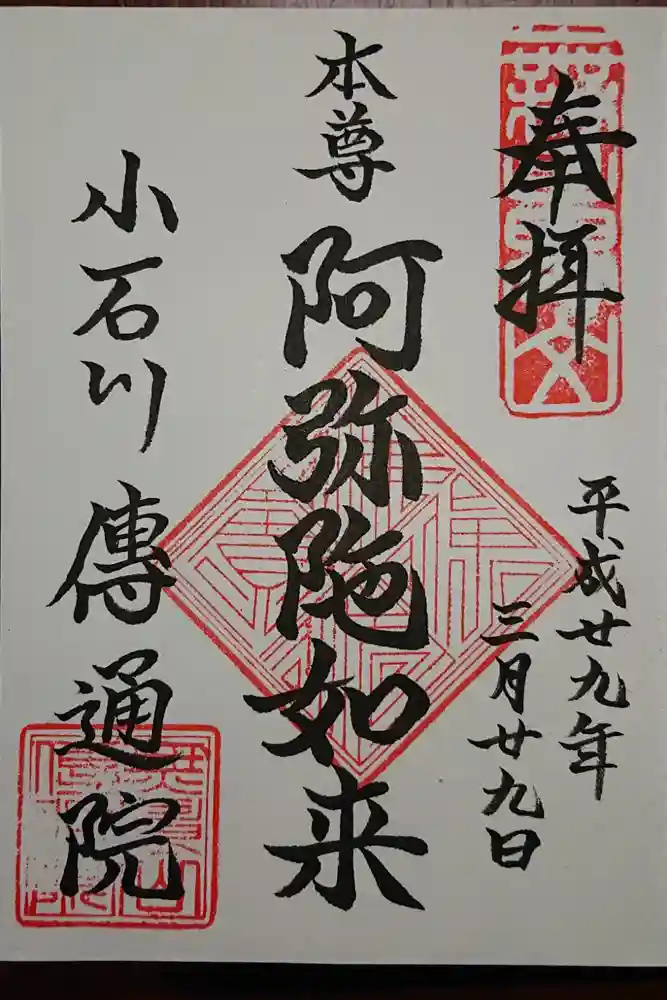 奉拝
平成廿九年
三月廿九日
本尊 阿弥陀如来
小石川 傳通院